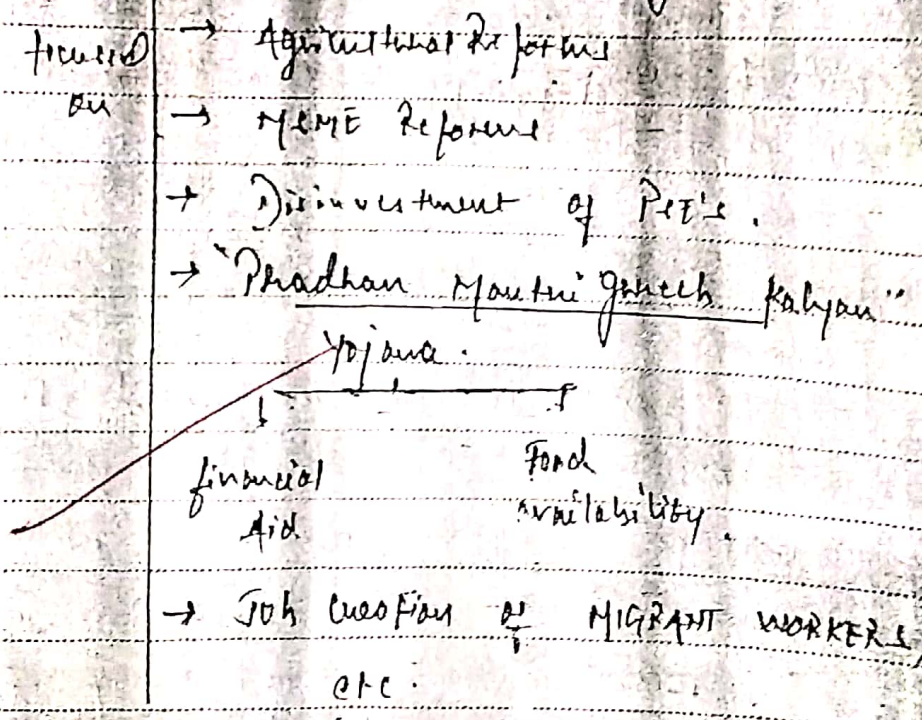 focused → Agricultural Reforms
on → MSME Reforms
→ Disinvestment of PSE's.
→ "Pradhan Mantri Greeb Kalyan"
Yojana.
financial Food
Aid availability.
→ Job Creation of MIGRANT WORKERS
etc.